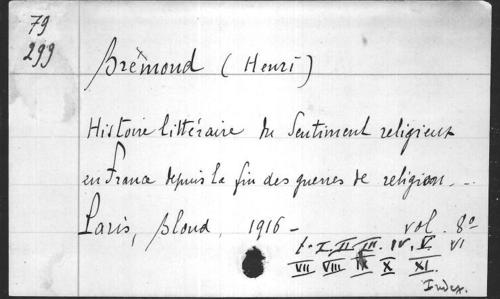 79
299
Bremond (Henri)
Histoire littéraire du Sentiment religieux
en France depuis la fin des guerres de religion...
Paris, Bloud, 1916 - vol. 8°
t. I. II. III. IV. V. VI
VII VIII IX X XI.
Index.